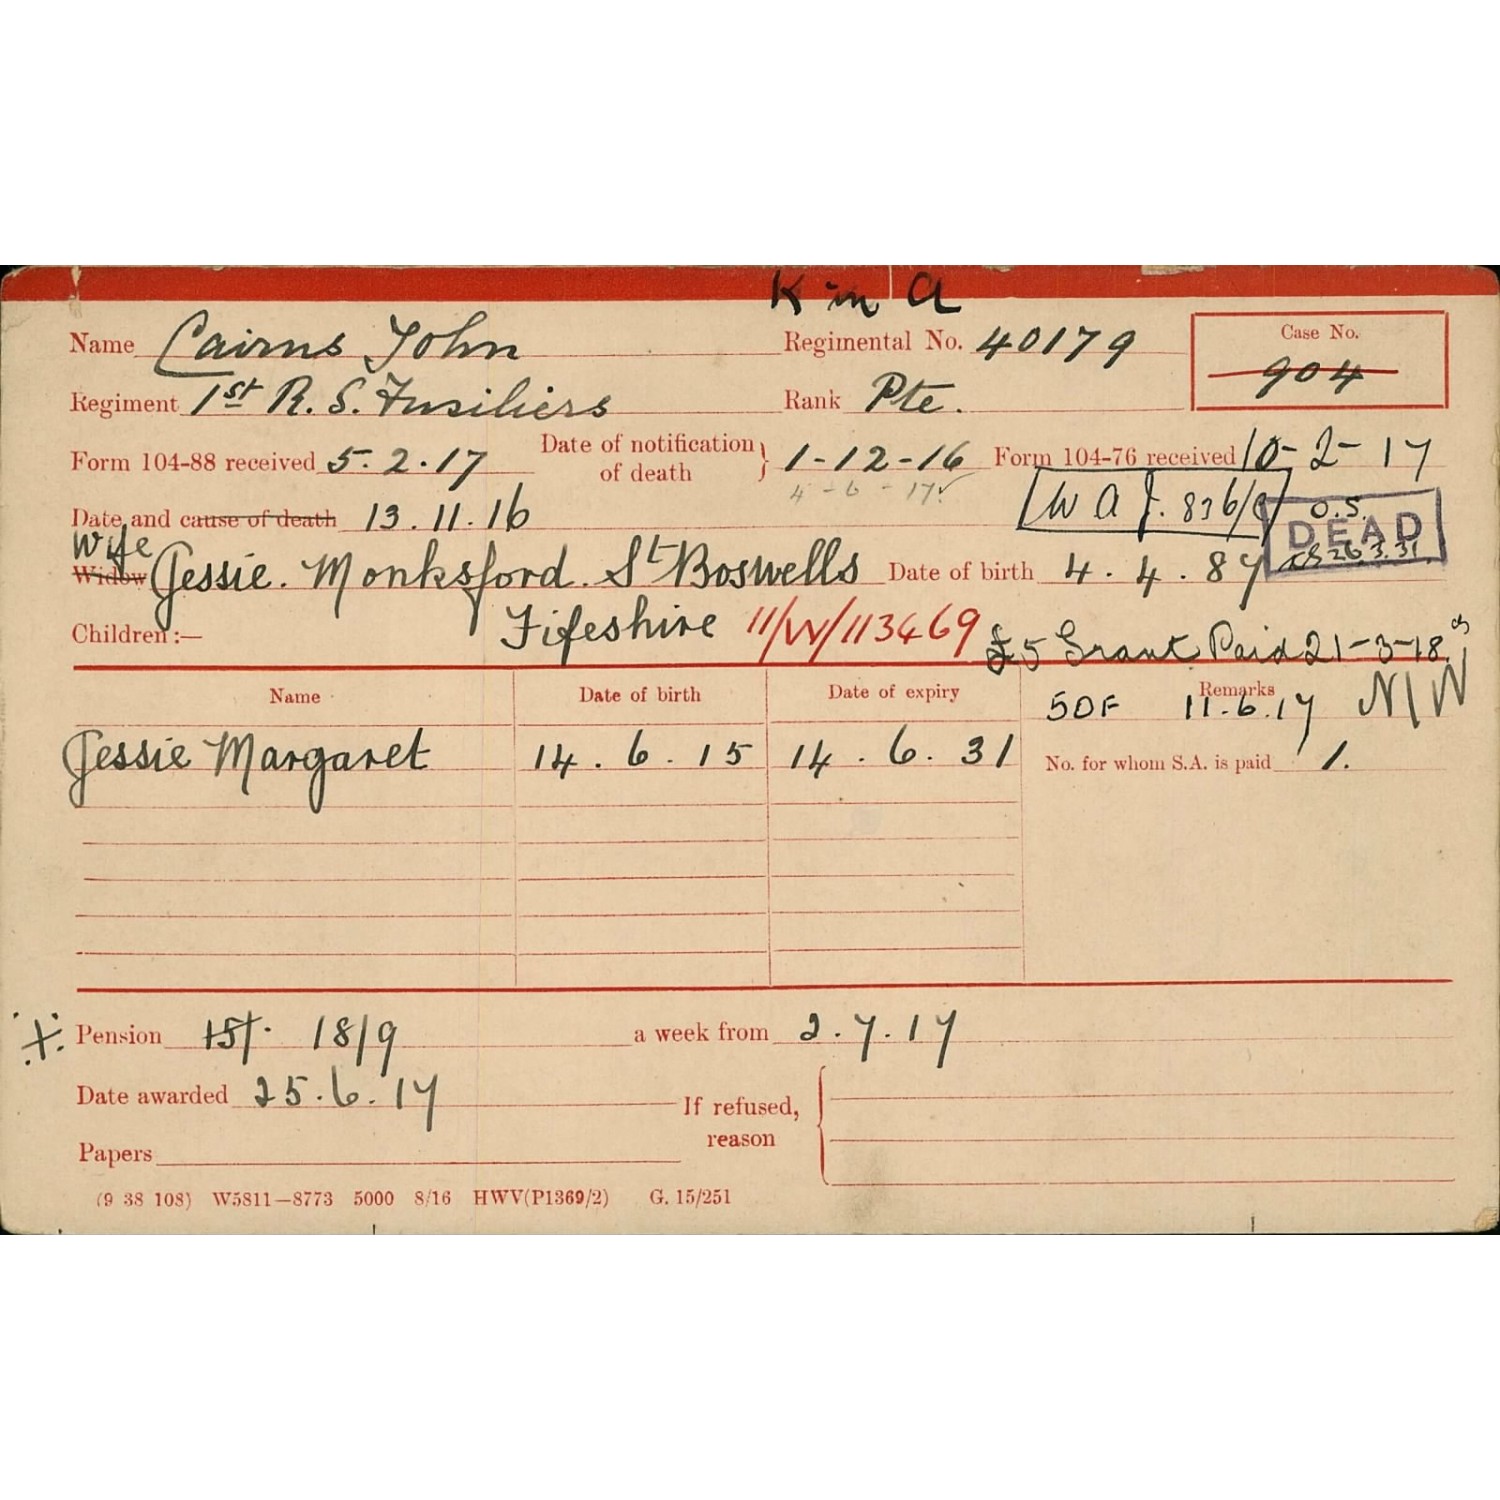 K in A
Name Cairns John Regimental No. 40179 Case No. 904
Regiment 1st R. S. Fusiliers Rank Pte.
Form 104-88 received 5.2.17 Date of notification of death } 1-12-16 Form 104-76 received 10-2-17
4-6-17
Date and cause of death 13.11.16 W A J. 836/ O.S.
DEAD
26.3.31
Wife
Widow Jessie. Monksford. St Boswells Date of birth 4.4.87
Children:— Fifeshire 11/W/113469 £5 Grant Paid 21-3-18
Name Date of birth Date of expiry Remarks
SOF 11.6.17 N/W
Jessie Margaret 14.6.15 14.6.31 No. for whom S.A. is paid 1.
Pension 15/- 18/9 a week from 2.7.17
Date awarded 25.6.17 If refused, reason
Papers
(9 38 108) W5811—8773 5000 8/16 HWV(P1369/2) G. 15/251